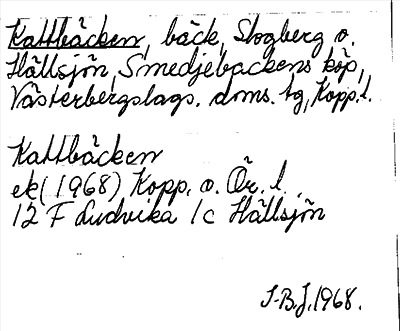 Kattbäcken, bäck, Skogberg o.
Hällsjön, Smedjebackens köp,
Västerbergslags. doms. tg, Kopp.l.
Kattbäcken
ek (1968) Kopp. o. Ör. l.
12 F Ludvika 1c Hällsjön
I-B.J. 1968.